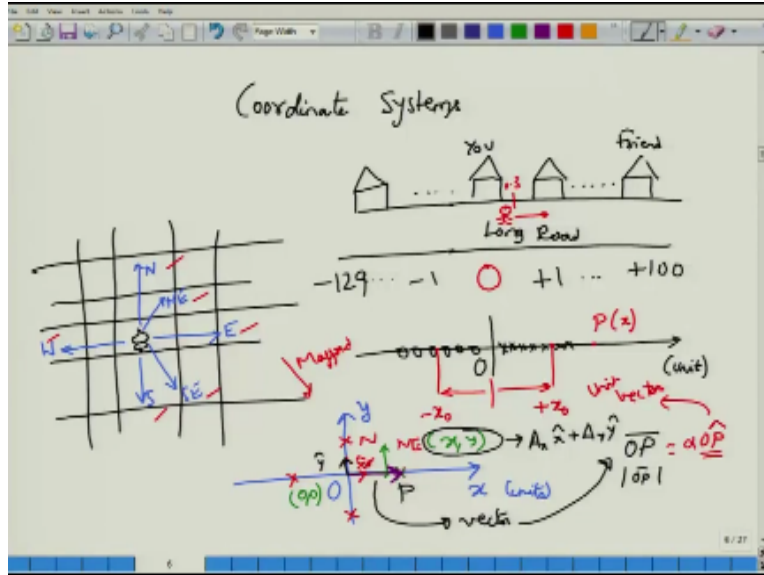 File Edit View Insert Actions Tools Help
Page Width
Coordinate Systems
You
Friend
Long Road
-129 ... -1 0 +1 ... +100
N
NE
E
W
S
SE
Mapped
P(x)
0
(unit)
-x₀
+x₀
unit vector
y
N
NE (x, y) → Aₓ x̂ + Aᵧ ŷ
OP = α OP̂
|OP|
ŷ
(0,0) 0 P x (units)
vector
6 / 27
6